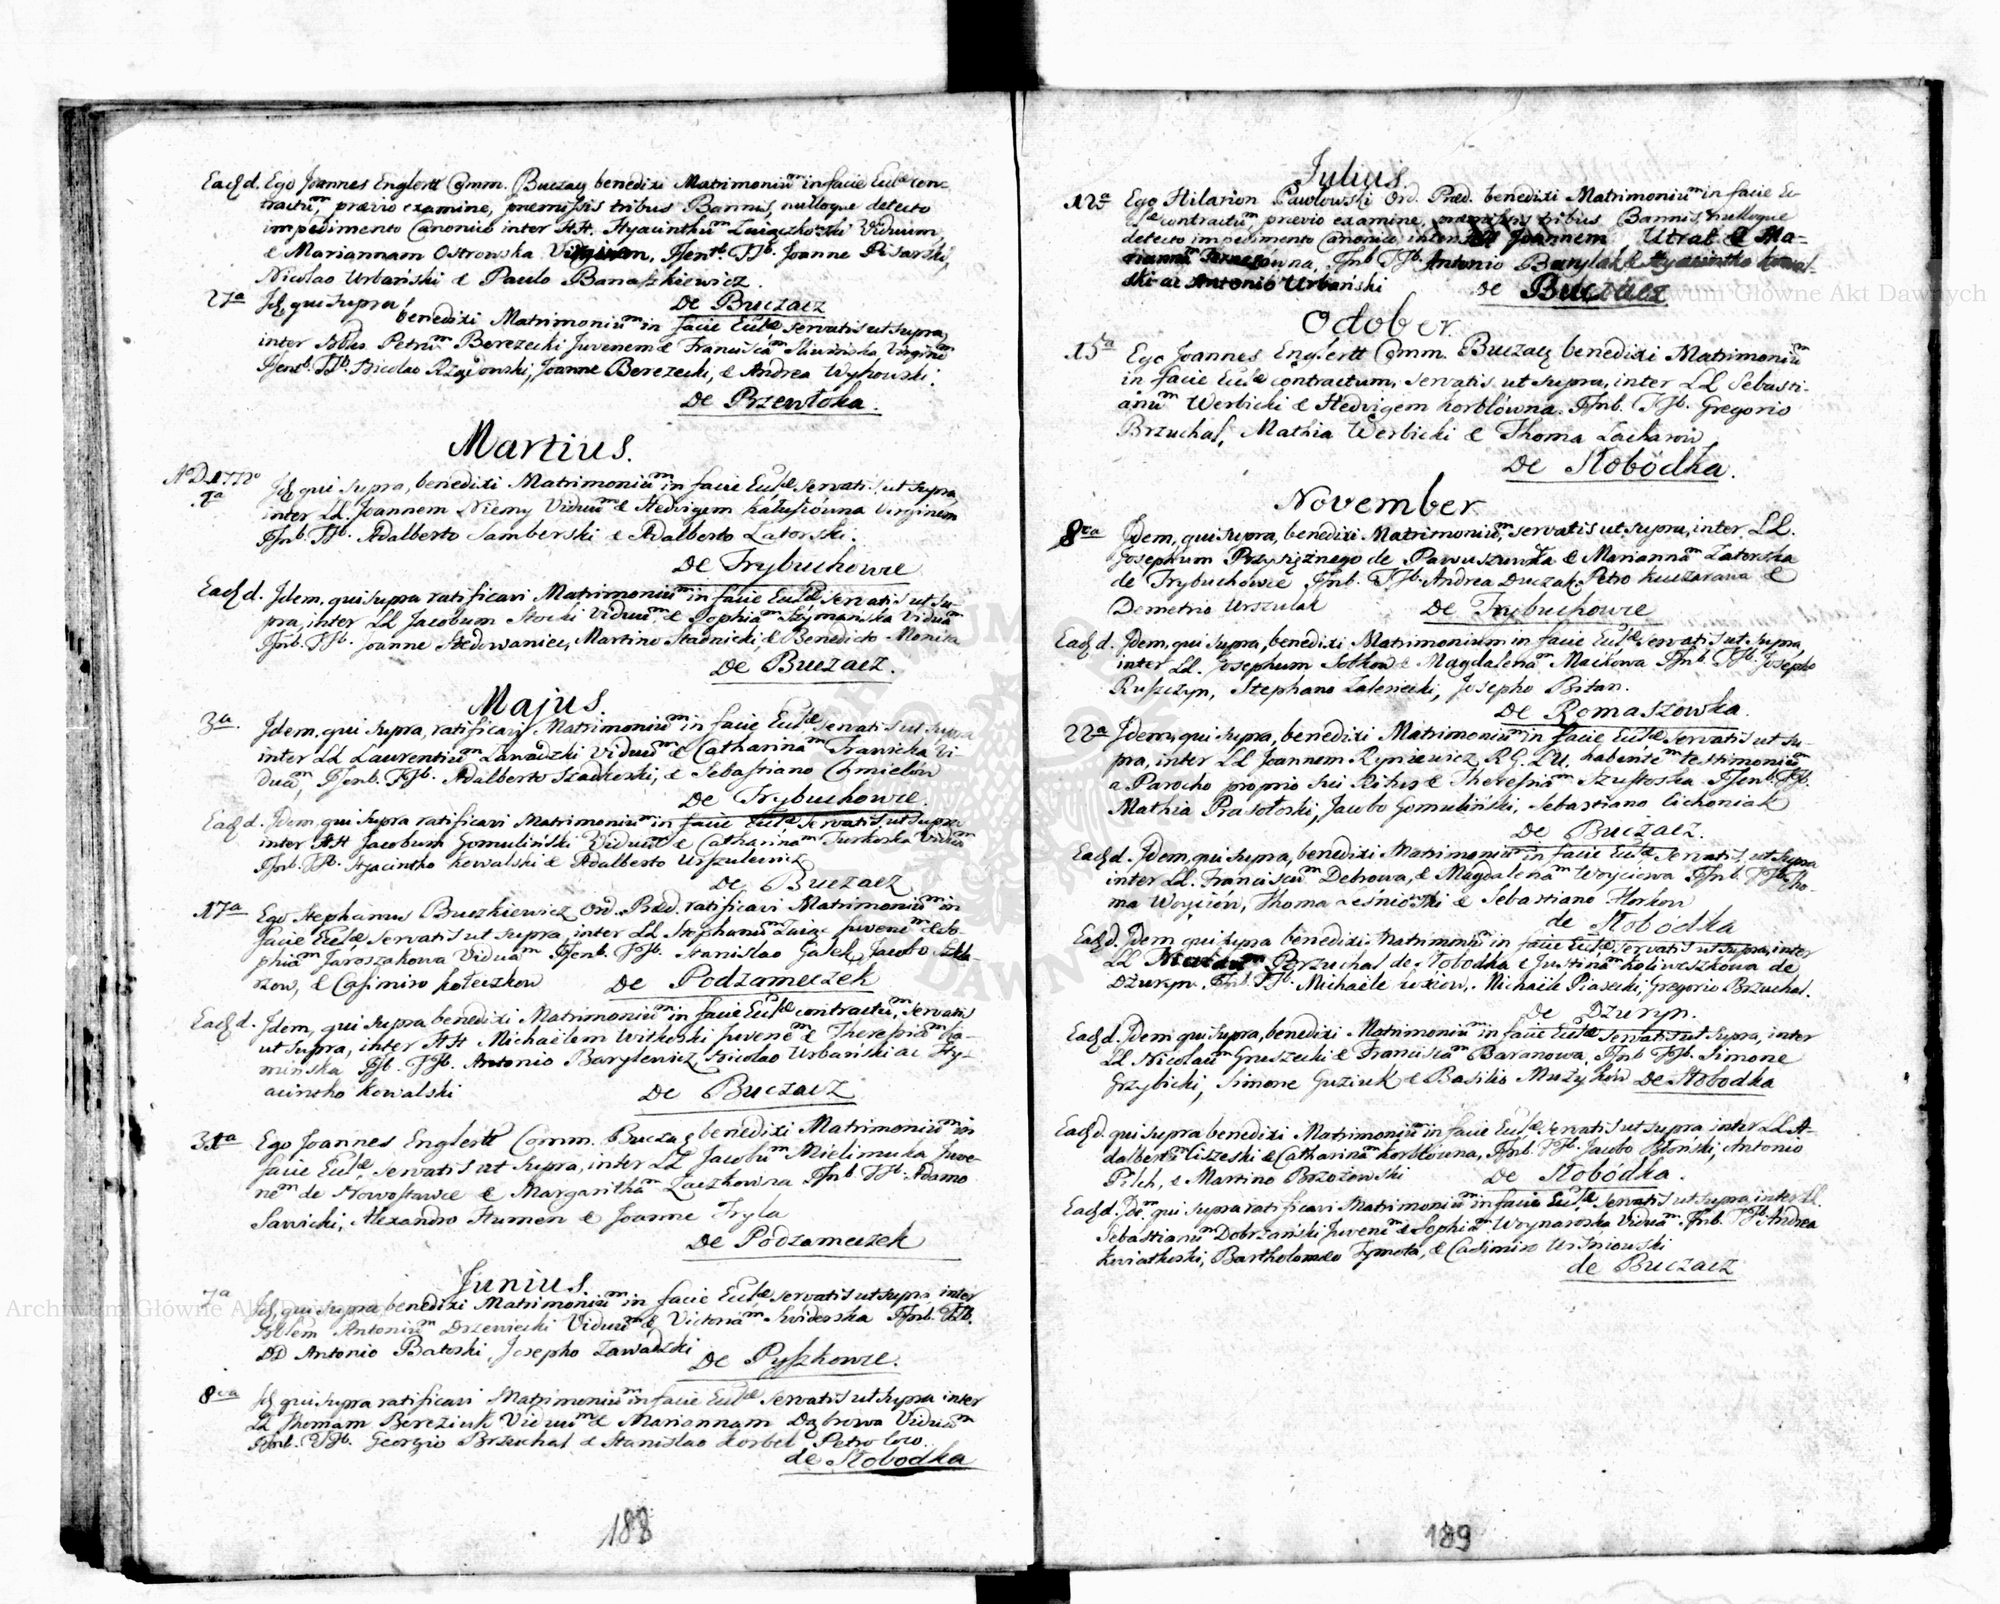 Eaqd. Ego Joannes Englertt Comm. Buczacz benedixi Matrimoniūm in facie Ecclae con-
tractū, prævio examine, præmissis tribus Bannis, nulloque detecto
impedimento Canonico inter HH. Hyacinthūm Zaiączkoski Viduum
& Mariannam Ostrowska, Ppsentb. TTb. Joanne Pisarski,
Nicolao Urbański & Paulo Banaszkiewicz.
De Buczacz
27a Idq qui supra, benedixi Matrimoniūm in facie Ecclae servatis ut supra,
inter Petrūm Berezecki Juvenem & Franciscām Virginē
Ppsentb. TTb. Nicolao Rzędonski, Joanne Berezecki, & Andrea Wykowski.
De Przewłoka.
Martius.
Ao D. 1772o
Idq qui supra, benedixi Matrimoniūm in facie Ecclae servatis ut supra,
inter LL. Joannem Niemy Viduūm & Hedvigem Virginem
Ppsnb. TTb. Adalberto Samberski & Adalberto Zatorski.
De Trybuchowce
Eaqd. Idem, qui supra ratificavi Matrimoniūm in facie Ecclae servatis ut su-
pra, inter LL Jacobum Stocki Viduūm & Sophiām Szymańska Viduām
Ppsnb. TTb. Joanne Stedowaniec, Martino Stadnicki, & Benedicto Monica
De Buczacz.
Majus.
3a. Idem, qui supra, ratificavi Matrimoniūm in facie Ecclae servatis ut supra
inter LL Laurentiūm Zawadzki Viduūm & Catharinām Trawicka Vi-
duām, Ppsenb. TTb. Adalberto Szadkoski, & Sebastiano Chmielów
De Trybuchowce.
Eaqd. Idem, qui supra ratificavi Matrimoniūm in facie Ecclae servatis ut supra
inter HH Jacobum Gomuliński Viduūm & Catharinām Turkoska Viduām
Ppsnb. TTb. Hyacintho Kowalski & Adalberto Urszulewicz
De Buczacz
17a Ego Stephanus Buczkiewicz Ord. Præd. ratificavi Matrimoniūm in
facie Ecclae servatis ut supra, inter LL Stephanūm Zaiąc Juvenēm & So-
phiām Jaroszakowa Viduām Ppsenb. TTb. Stanislao Galek, Jacobo
& Casimiro Kołeczkow De Podzameczek
Eaqd. Idem, qui supra benedixi Matrimoniūm in facie Ecclae contractūm, servatis
ut supra, inter HH Michaëlem Witkoski Juvenēm & Theresiām Ka-
mińska Ppsb. TTb. Antonio Barylewicz, Nicolao Urbański ac Hy-
acintho Kowalski De Buczacz
31a Ego Joannes Englertt Comm. Buczacz benedixi Matrimoniūm in
facie Ecclae, servatis ut supra, inter LL Jacobūm Mielimuka Juve-
nēm de Nowostawce & Margarithām Zaczkowna Ppsnb TTb. Adamo
Sawicki, Alexandro Humen & Joanne Tryla
De Podzameczek
Junius.
7a Idq qui supra benedixi Matrimoniūm in facie Ecclae servatis ut supra inter
Antoniūm Drzewiecki Viduūm & Victoriām Swiderska Ppsnb. TTb.
DD Antonio Batoski, Josepho Zawadzki De Pyszkowce.
8va Idq qui supra ratificavi Matrimoniūm in facie Ecclae servatis ut supra inter
LL Thomam Bereziuk Viduūm & Mariannam Dąbrowa Viduām
Ppsnb. TTb. Georgio Brzuchal & Stanislao Korbel Petro
de Słobodka
188
Julius
12a Ego Hilarion Pawłowski Ord. Præd. benedixi Matrimoniūm in facie Ec-
clae contractūm prævio examine, præmissis tribus Bannis, nulloque
detecto impedimento Canonico, inter Joannem Utrat & Ma-
riannām Ppsnb TTb Antonio Barylak & Hyacintho Kowal-
ski ac Antonio Urbański De Buczacz
October.
15a Ego Joannes Englertt Comm. Buczacz benedixi Matrimoniūm
in facie Ecclae contractum, servatis ut supra, inter LL Sebasti-
anūm Werbicki & Hedvigem Korblówna. Ppsnb. TTb. Gregorio
Brzuchal, Mathia Werbicki & Thoma Zacharow,
De Słobódka.
November
8va Idem, qui supra, benedixi Matrimoniūm, servatis ut supra, inter LL.
Josephum Przysiężnego de Pawuszuwka & Mariannām Zatorska
de Trybuchowce Ppsnb. TTb. Andrea Duczak, Petro Kuczarawa &
Demetrio Urszulak De Trybuchowce
Eaqd. Idem, qui supra, benedixi Matrimonium in facie Ecclae servatis ut supra,
inter LL. Josephum Sotkow & Magdalenām Maikowa Ppsnb. TTb. Josepho
Ruszczyn, Stephano Zaleniecki, Josepho Bitan.
De Romaszowka.
22a Idem, qui supra, benedixi Matrimoniūm in facie Ecclae servatis ut su-
pra, inter LL Joannem Ryniewicz R.G.L.U. habentē testimoniūm
a Parocho proprio sui Ritus & Theresiām Szustoska Ppsenb. TTb.
Mathia Prasołoski, Jacobo Gomuliński, Sebastiano Cichoniak
De Buczacz.
Eaqd. Idem, qui supra, benedixi Matrimoniūm in facie Ecclae servatis, ut supra
inter LL. Franciscūm Debrowa, & Magdalenām Woyciowa Ppsnb. TTb. Tho-
ma Woyciów, Thoma Leśnioski & Sebastiano Horkow
de Słobódka
Eaqd. Idem qui supra benedixi Matrimoniūm in facie Ecclae servatis ut supra, inter
LL Brzuchal de Słobodka & Justinām Koliweszkowa de
Dzuryn. Ppsnb. TTb. Michaële Lixiow, Michaële Piasecki, Gregorio Brzuchal.
De Dzuryn.
Eaqd. Idem qui supra, benedixi Matrimoniūm in facie Ecclae servatis ut supra, inter
LL. Nicolaūm Gruszecki & Franciscām Baranowa, Ppsnb TTb. Simone
Grzybicki, Simone Guziuk & Basilio Muzyków De Słobodka
Eaqd. qui supra benedixi Matrimoniūm in facie Ecclae servatis ut supra inter LL A-
dalbertūm Liszeski & Catharinām Korblowna, Ppsnb. TTb. Jacobo Błonski, Antonio
Pilch, & Martino Brzozowski De Słobódka.
Eaqd. Idem. qui supra ratificavi Matrimoniūm in facie Ecclae, servatis ut supra, inter LL
Sebastianūm Dobrzański Juvenē & Sophiām Woynaroska Viduām. Ppsnb. TTb. Andrea
Kwiatkoski, Bartholomæo Symota, & Casimiro Wiśniowski
de Buczacz
189
Archiwum Główne Akt Dawnych